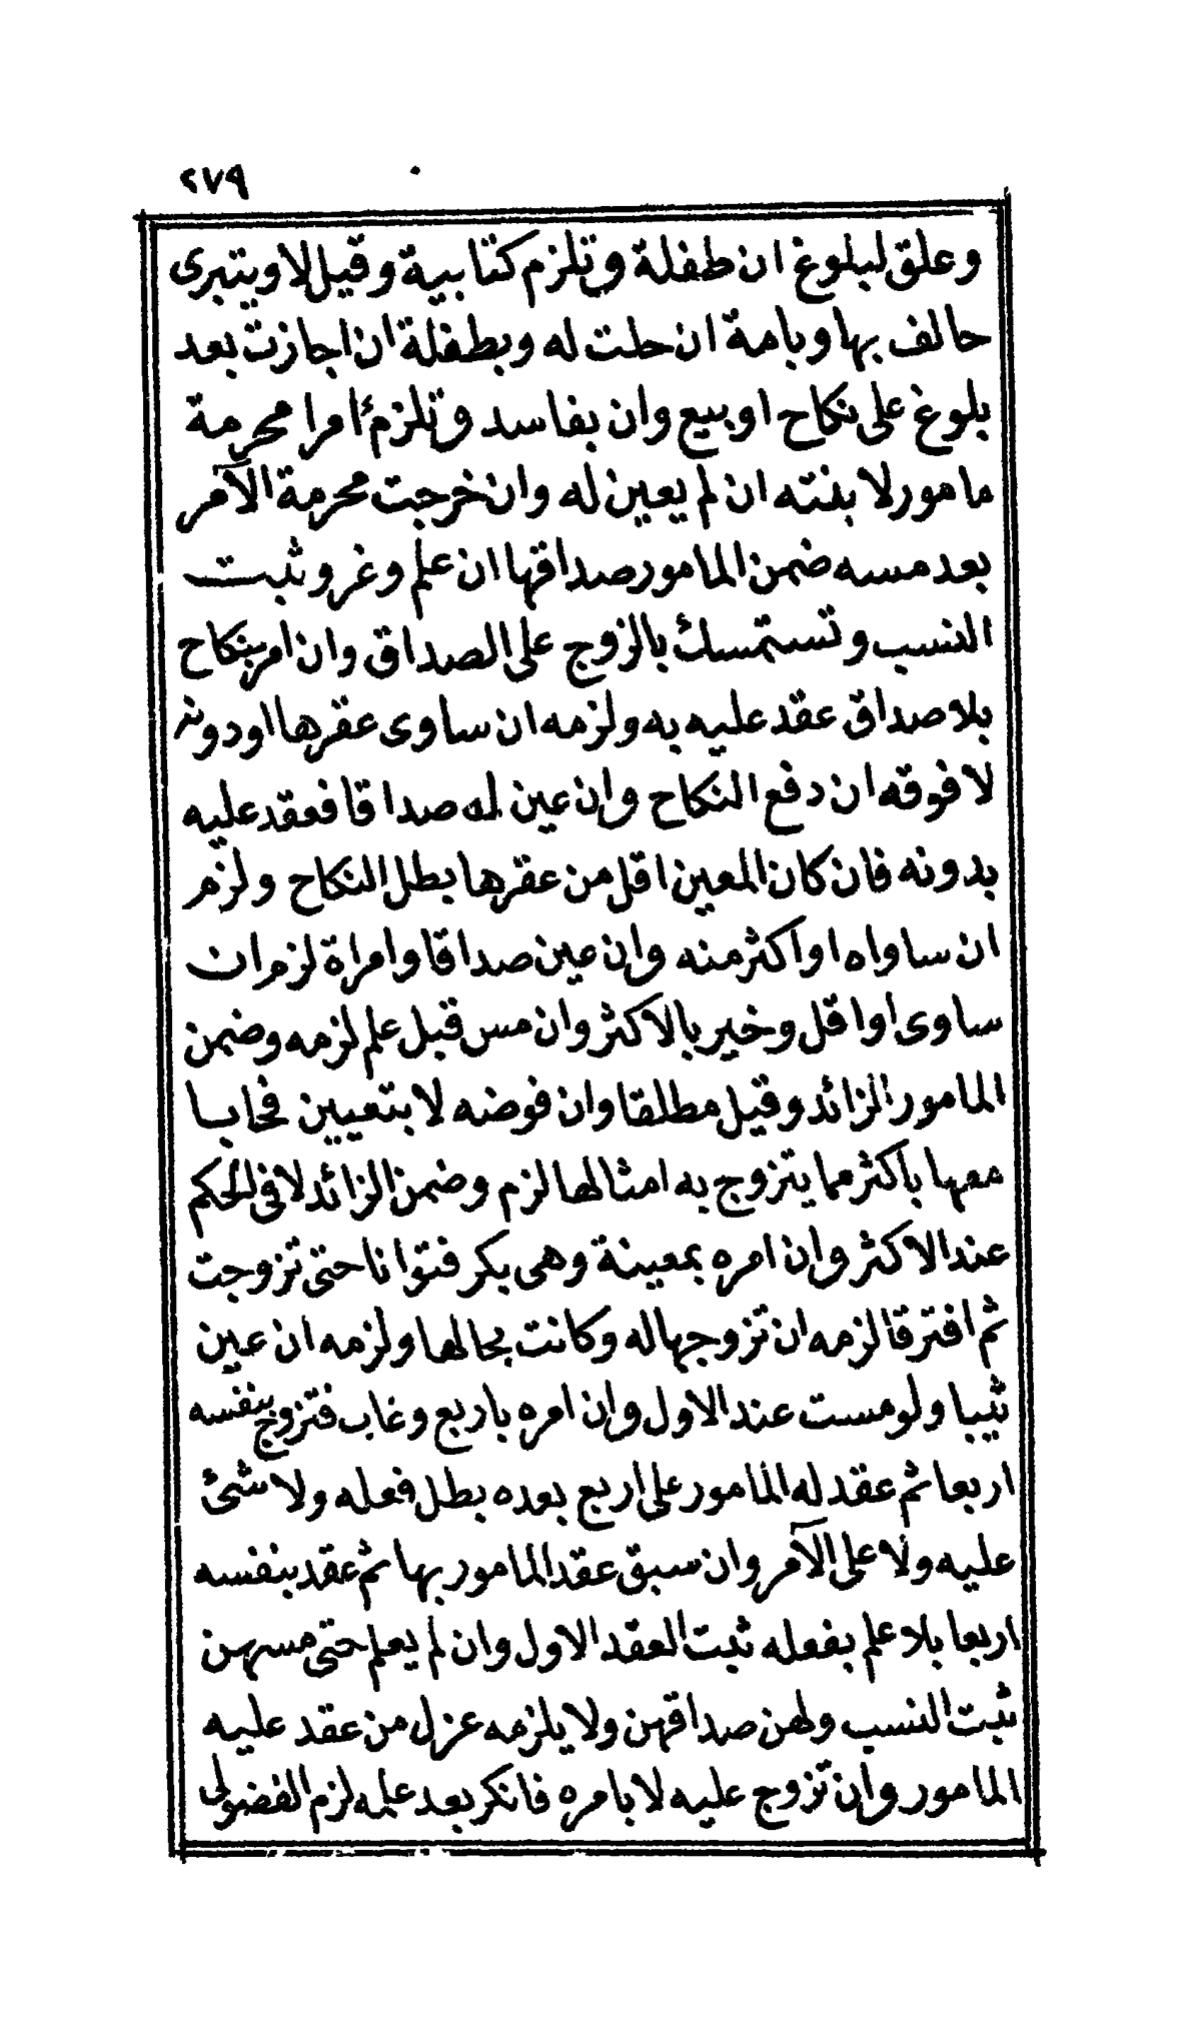 ٢٧٩
وعلق لبلوغ ان طفلة وتلزم كتابية وقيل لا ويتبرى
حالف بها وبامة ان حلت له وبطفلة ان اجازت بعد
بلوغ على نكاح او بيع وان بفاسد وتلزم أمرا محرمة
مامور لا بنته ان لم يعين له وان خرجت محرمة الآمر
بعد مسه ضمن المامور صداقها ان علم وغر وثبت
النسب وتستمسك بالزوج على الصداق وان امر بنكاح
بلا صداق عقد عليه به ولزمه ان ساوى عقرها او دونه
لا فوقه ان دفع النكاح وان عين له صداقا فعقد عليه
بدونه فان كان المعين اقل من عقرها بطل النكاح ولزم
ان ساواه او اكثر منه وان عين صداقا وامراة لزم ان
ساوى او اقل وخير بالاكثر وان مس قبل علم لزمه وضمن
المامور الزائد وقيل مطلقا وان فوضه لا بتعيين فحابا
معها باكثر مما يتزوج به امثالها لزم وضمن الزائد لا فى الحكم
عند الاكثر وان امره بمعينة وهى بكر فتوانا حتى تزوجت
ثم افترقا لزمه ان تزوجها له وكانت بحالها ولزمه ان عين
ثيبا ولو مست عند الاول وان امره باربع وغاب فتزوج بنفسه
اربعا ثم عقد له المامور على اربع بعده بطل فعله ولا شئ
عليه ولا على الآمر وان سبق عقد المامور بها ثم عقد بنفسه
اربعا بلا علم بفعله ثبت العقد الاول وان لم يعلم حتى مسهن
ثبت النسب ولهن صداقهن ولا يلزمه عزل من عقد عليه
المامور وان تزوج عليه لا بامره فانكر بعد علمه لزم الفضولى